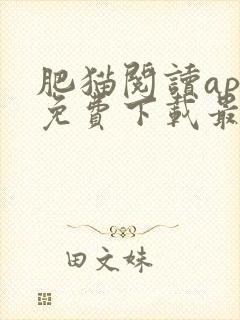 肥猫閱讀ap
免費下載最
田文妹